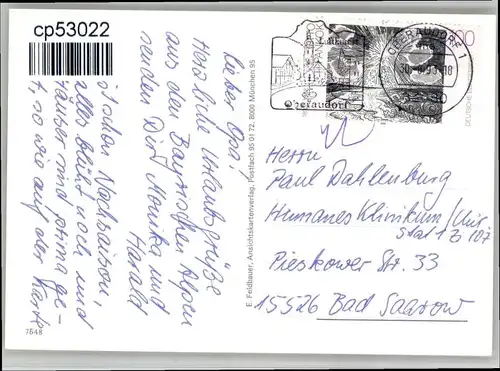 cp53022
Lieber Opa!
Herzliche Urlaubsgrüße
aus den Bayrischen Alpen
senden Dir Monika und
Harald
ist schon Nachsaison,
alles blüht noch und
Häuser sind prima ge-
t, so wie auf der Karte
7548
E. Feldbauer, Ansichtskartenverlag, Postfach 95 01 72, 8000 München 95
Luftkurort
Oberaudorf
OBERAUDORF 1
Herrn
Paul Dahlenburg
Humanes Klinikum/Chir
Stat 1 Z 107
Pieskower Str. 33
15526 Bad Saarow